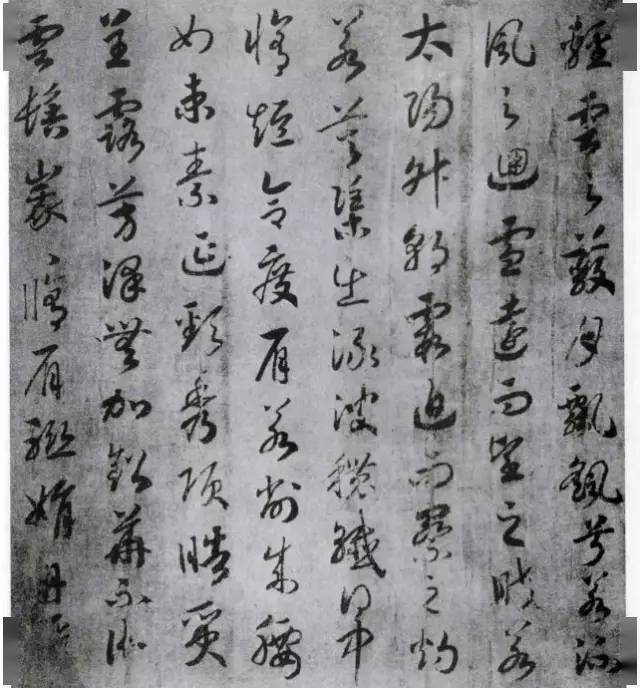 輕雲之蔽月飄飖兮若流
風之迴雪遠而望之皎若
太陽升朝霞迫而察之灼
若芙蕖出淥波穠纖得中
脩短合度肩若削成腰
如束素延頸秀項皓質
呈露芳澤無加鉛華不御
雲髻峩々脩眉聯娟丹唇